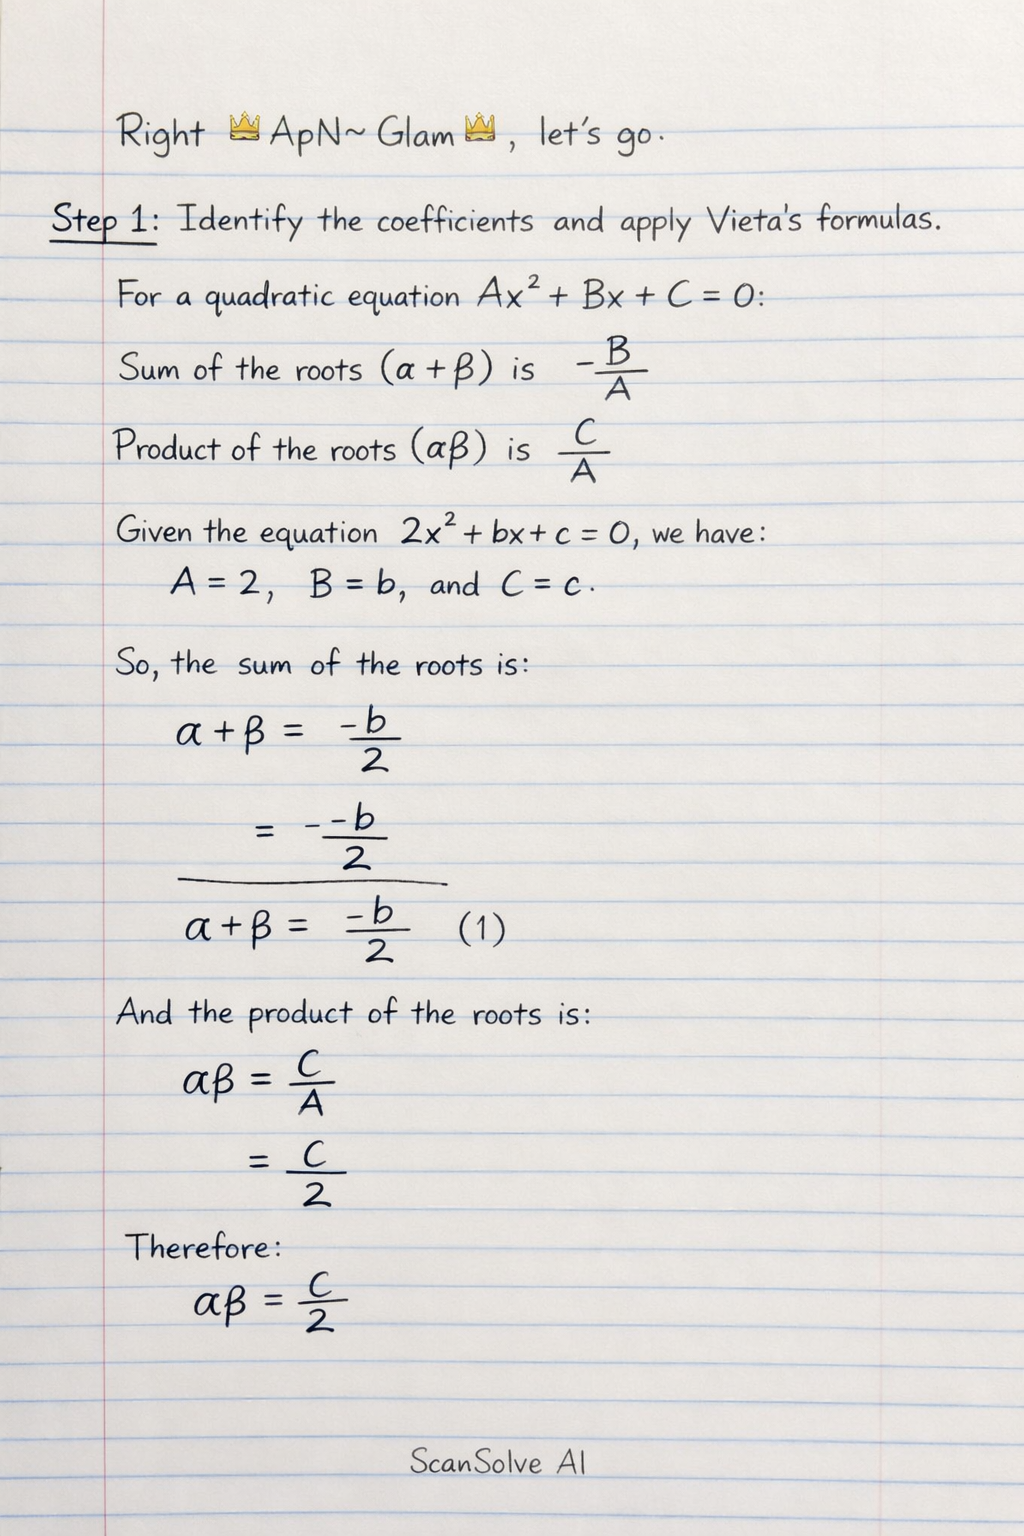 Right 👑 ApN~ Glam 👑, let's go.
Step 1: Identify the coefficients and apply Vieta's formulas.
For a quadratic equation Ax² + Bx + C = 0:
Sum of the roots (α + β) is -B/A
Product of the roots (αβ) is C/A
Given the equation 2x² + bx + c = 0, we have:
A = 2, B = b, and C = c.
So, the sum of the roots is:
α + β = -b/2
= --b/2
α + β = -b/2 (1)
And the product of the roots is:
αβ = C/A
= C/2
Therefore:
αβ = C/2
ScanSolve AI